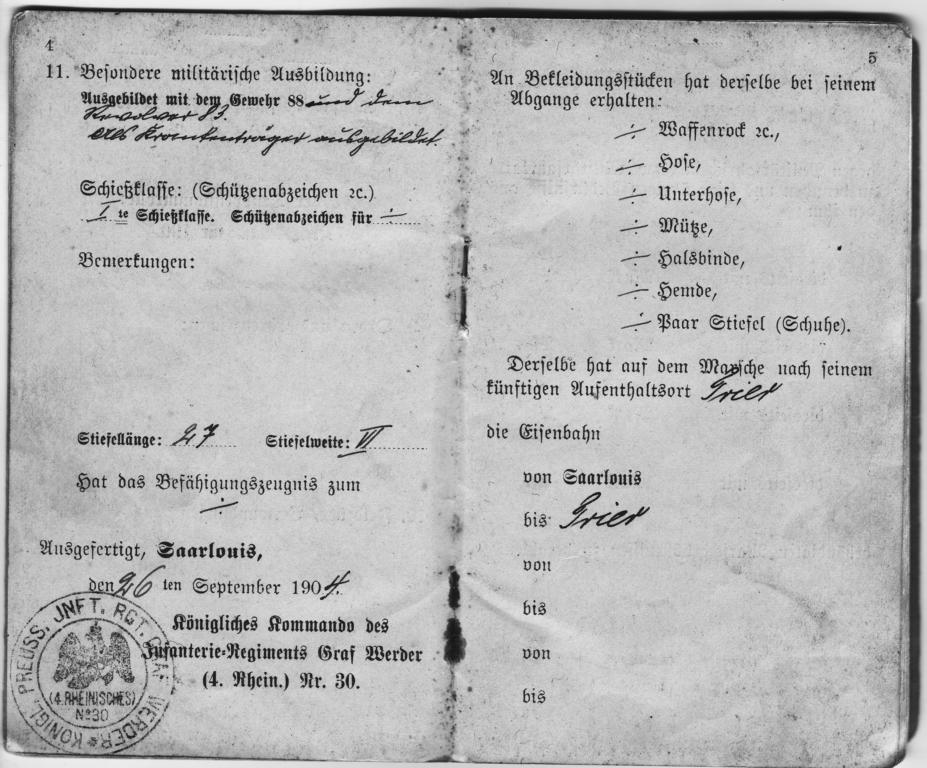 4
11. Besondere militärische Ausbildung:
Ausgebildet mit dem Gewehr 88 und dem
Revolver 83.
Als Krankenträger ausgebildet.
Schießklasse: (Schützenabzeichen ꝛc.)
I te Schießklasse. Schützenabzeichen für ÷
Bemerkungen:
Stiefellänge: 27 Stiefelweite: VI
Hat das Befähigungszeugnis zum
÷
Ausgefertigt, Saarlouis,
den 26 ten September 1904.
Königliches Kommando des
Infanterie-Regiments Graf Werder
(4. Rhein.) Nr. 30.
KÖNIGL. PREUSS. JNFT. RGT. GRAF WERDER
(4. RHEINISCHES)
No 30
5
An Bekleidungsstücken hat derselbe bei seinem
Abgange erhalten:
÷ Waffenrock ꝛc.,
÷ Hose,
÷ Unterhose,
÷ Mütze,
÷ Halsbinde,
÷ Hemde,
÷ Paar Stiefel (Schuhe).
Derselbe hat auf dem Marsche nach seinem
künftigen Aufenthaltsort Trier
die Eisenbahn
von Saarlouis
bis Trier
von
bis
von
bis